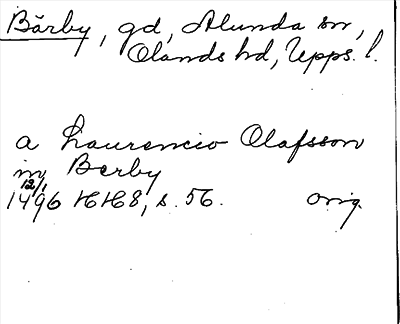 Bärby, gd, Alunda sn,
Olands hd, Upps. l.
a Laurencio Olafsson
in Berby
12/1
1496 HH8, s. 56. orig.